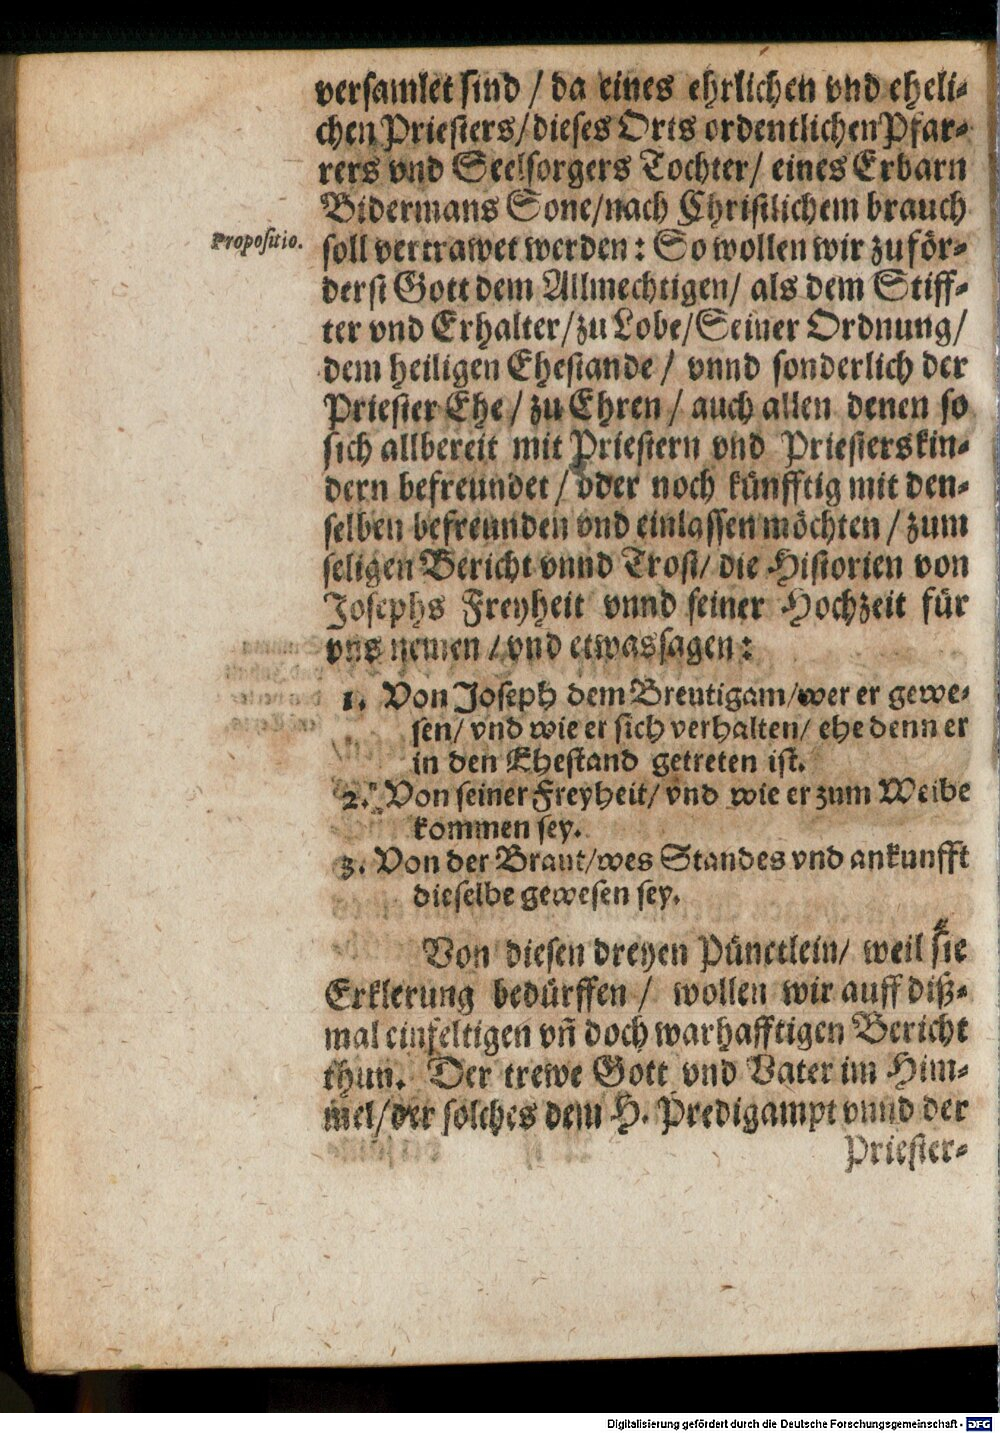 versamlet sind / da eines ehrlichen vnd eheli-
chen Priesters/dieses Orts ordentlichen Pfar-
rers vnd Seelsorgers Tochter/ eines Erbarn
Bidermans Sone/nach Christlichem brauch
Propositio.
soll vertrawet werden: So wollen wir zu för-
derst Gott dem Allmechtigen/ als dem Stiff-
ter vnd Erhalter/zu Lobe/Seiner Ordnung/
dem heiligen Ehestande / vnnd sonderlich der
Priester Ehe / zu Ehren / auch allen denen so
sich allbereit mit Priestern vnd Priesterskin-
dern befreundet / oder noch künfftig mit den-
selben befreunden vnd einlassen möchten / zum
seligen Bericht vnnd Trost/ die Historien von
Josephs Freyheit vnnd seiner Hochzeit für
vns nemen / vnd etwas sagen:
1. Von Joseph dem Breutigam/wer er gewe-
sen/ vnd wie er sich verhalten/ ehe denn er
in den Ehestand getreten ist.
2. Von seiner Freyheit/ vnd wie er zum Weibe
kommen sey.
3. Von der Braut/wes Standes vnd ankunfft
dieselbe gewesen sey.
Von diesen dreyen Pünctlein/ weil sie
Erklerung bedürffen / wollen wir auff diß-
mal einfeltigen vñ doch warhafftigen Bericht
thun. Der trewe Gott vnd Vater im Him-
mel/der solches dem H. Predigampt vnnd der
Priester-
Digitalisierung gefördert durch die Deutsche Forschungsgemeinschaft - DFG